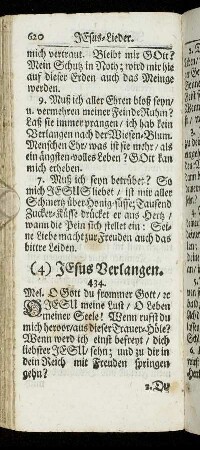 620 JEsus-Lieder.
mich vertraut. Bleibt mir GOtt?
Mein Schutz in Noth; wird mir hie
auf dieser Erden auch das Meinge
werden.
9. Muß ich aller Ehren bloß seyn/
u. vermehren meiner Feinde Ruhm?
Laß sie immer prangen/ ich hab kein
Verlangen nach der Wiesen-Blum.
Menschen Ehr/ was ist sie mehr/ als
ein ängsten-volles Leben? GOtt kan
mich erheben.
7. Muß ich seyn betrübet? So
mich JESUS liebet/ ist mir aller
Schmertz über Honig-süsse; Tausend
Zucker-küsse drücket er aus Hertz/
wann die Pein sich stellet ein: Sei-
ne Liebe macht zur Freuden auch das
bittre Leiden.
(4) JEsus Verlangen.
434.
Mel. O Gott du frommer Gott/ ꝛc
O JESU meine Lust/ O Leben
meiner Seele! Wenn rufst du
mich hervor/ aus dieser Trauer-Höle?
Wenn werd ich einst befreyt/ dich
liebster JESU/ sehn; und zu dir in
dein Reich mit Freuden springen
gehn?
2. Du